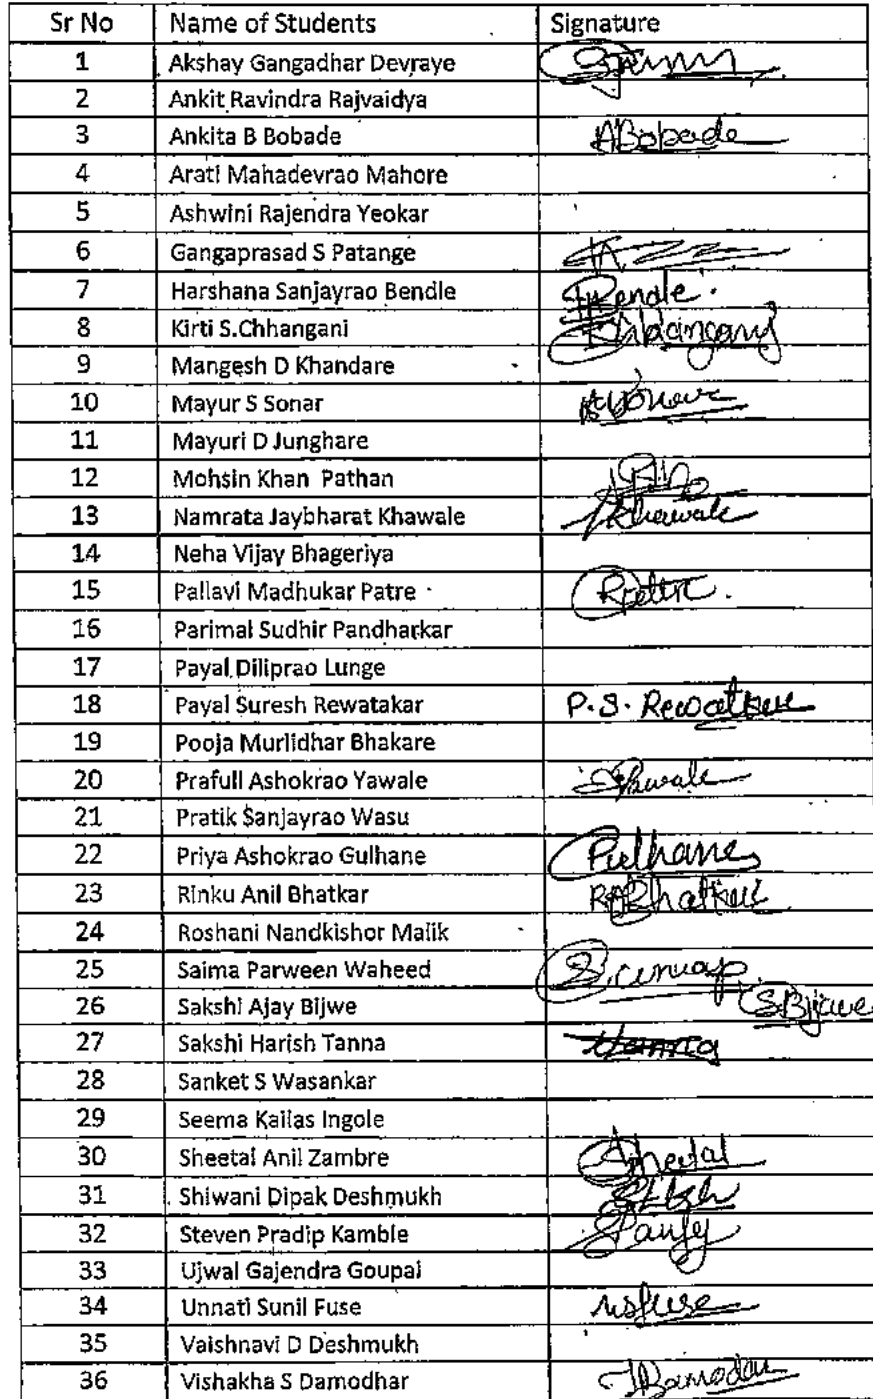 Sr No Name of Students Signature
1 Akshay Gangadhar Devraye
2 Ankit Ravindra Rajvaidya
3 Ankita B Bobade ABobade
4 Arati Mahadevrao Mahore
5 Ashwini Rajendra Yeokar
6 Gangaprasad S Patange
7 Harshana Sanjayrao Bendle Bendle
8 Kirti S.Chhangani
9 Mangesh D Khandare
10 Mayur S Sonar
11 Mayuri D Junghare
12 Mohsin Khan Pathan
13 Namrata Jaybharat Khawale Khawale
14 Neha Vijay Bhageriya
15 Pallavi Madhukar Patre
16 Parimal Sudhir Pandharkar
17 Payal Diliprao Lunge
18 Payal Suresh Rewatakar P.S. Rewatkar
19 Pooja Murlidhar Bhakare
20 Prafull Ashokrao Yawale
21 Pratik Sanjayrao Wasu
22 Priya Ashokrao Gulhane
23 Rinku Anil Bhatkar RABhatkar
24 Roshani Nandkishor Malik
25 Saima Parween Waheed
26 Sakshi Ajay Bijwe SBijwe
27 Sakshi Harish Tanna
28 Sanket S Wasankar
29 Seema Kailas Ingole
30 Sheetal Anil Zambre Sheetal
31 Shiwani Dipak Deshmukh
32 Steven Pradip Kamble
33 Ujwal Gajendra Goupal
34 Unnati Sunil Fuse usfuse
35 Vaishnavi D Deshmukh
36 Vishakha S Damodhar